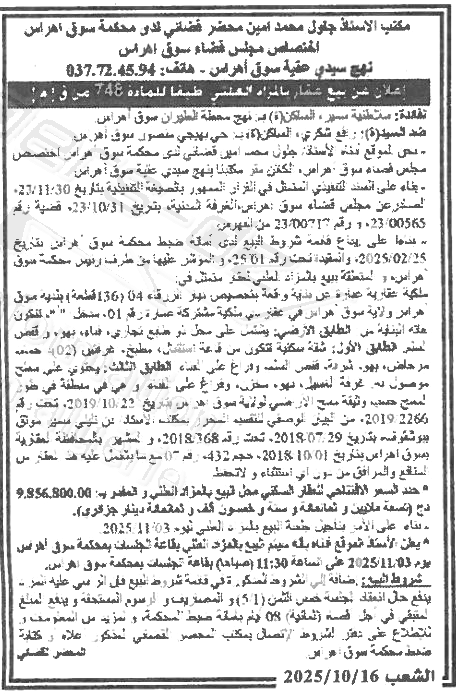 مكتب الاستاذ جلول محمد امين محضر قضائي لدى محكمة سوق اهراس
اختصاص مجلس قضاء سوق اهراس
نهج سيدي عقبة سوق أهراس - هاتف: 037.72.45.94
إعلان عن بيع عقار بالمزاد العلني طبقا للمادة 748 من ق إ م إ
لفائدة: سلاطنية سمير، الساكن(ة) بـ نهج محطة الطيران سوق أهراس
ضد السيد(ة): رافع شكري، الساكن(ة) بـ حي بهيجي منصول سوق أهراس
- نحن الموقع أدناه الأستاذ/ جلول محمد امين قضائي لدى محكمة سوق اهراس اختصاص
مجلس قضاء سوق اهراس، الكائن مقر مكتبنا بنهج سيدي عقبة سوق اهراس
- بناء على السند التنفيذي المتمثل في القرار الممهور بالصيغة التنفيذية بتاريخ 23/11/30
الصادر عن مجلس قضاء سوق اهراس، الغرفة المدنية، بتاريخ 23/10/31، قضية رقم
23/00565، و رقم 23/00717 من الفهرس
- بناءا على إيداع قائمة شروط البيع لدى أمانة ضبط محكمة سوق اهراس بتاريخ
2025/02/25، والمقيدة تحت رقم 25/01، و المؤشر عليها من طرف رئيس محكمة سوق
اهراس، و المتعلقة ببيع بالمزاد العلني لعقار متمثل في:
ملكية عقارية عبارة عن بناية واقعة بتخصيص ديار الزرقاء 04 (136قطعة) بلدية سوق
اهراس ولاية سوق اهراس في عقار مبني ملكية مشتركة عمارة رقم 01، مدخل "أ"، تتكون
هاته البناية من الطابق الأرضي: يشتمل على محل ذو طابع تجاري، فناء، بهو، و قفص
السلم الطابق الأول: شقة سكنية تتكون من قاعة استقبال، مطبخ، غرفتين (02)، حمام،
مرحاض، بهو، شرفة، قفص السلم وفراغ على الفناء الطابق الثالث: يحتوي على سطح
موصول به غرفة الغسيل، بهو، مخزن، وفراغ على الفناء و هي في منطقة في طور
المسح حسب وثيقة مسح الأراضي لولاية سوق اهراس بتاريخ 2019/10/22، تحت رقم
2019/2266
بتاريخ 2018/07/29، تحت رقم 2018/368، و المشهر بالمحافظة العقارية
بسوق اهراس بتاريخ 2018/10/01، حجم 432، رقم 07 مع ما يشتمل عليه هذا العقار من
المنافع والمرافق من دون أي استثناء و لا تحفظ
* حدد السعر الافتتاحي للعقار السكني محل البيع بالمزاد العلني و المقدر بـ: 9.856.800.00
دج (تسعة ملايين و ثمانمائة و ستة و خمسون ألف و ثمانمائة دينار جزائري).
- بناء على الأمر بتأجيل جلسة البيع بالمزاد العلني ليوم 2025/11/03
* يعلن الأستاذ الموقع أدناه بأنه سيتم البيع بالمزاد العلني بقاعة الجلسات بمحكمة سوق أهراس
يوم 2025/11/03 على الساعة 11:30 (صباحا) بقاعة الجلسات بمحكمة سوق اهراس.
شروط البيع: إضافة إلى الشروط المذكورة في قائمة شروط البيع فإن الراسي عليه المزاد
يدفع حال انعقاد الجلسة خمس الثمن (5/1) و المصاريف و الرسوم المستحقة و يدفع المبلغ
المتبقي في أجل أقصاه (ثمانية) 08 أيام بأمانة ضبط المحكمة، و لمزيد من المعلومات و
للاطلاع على دفتر الشروط الاتصال بمكتب المحضر القضائي المذكور أعلاه و كتابة
ضبط محكمة سوق اهراس. المحضر القضائي
الشعب 2025/10/16